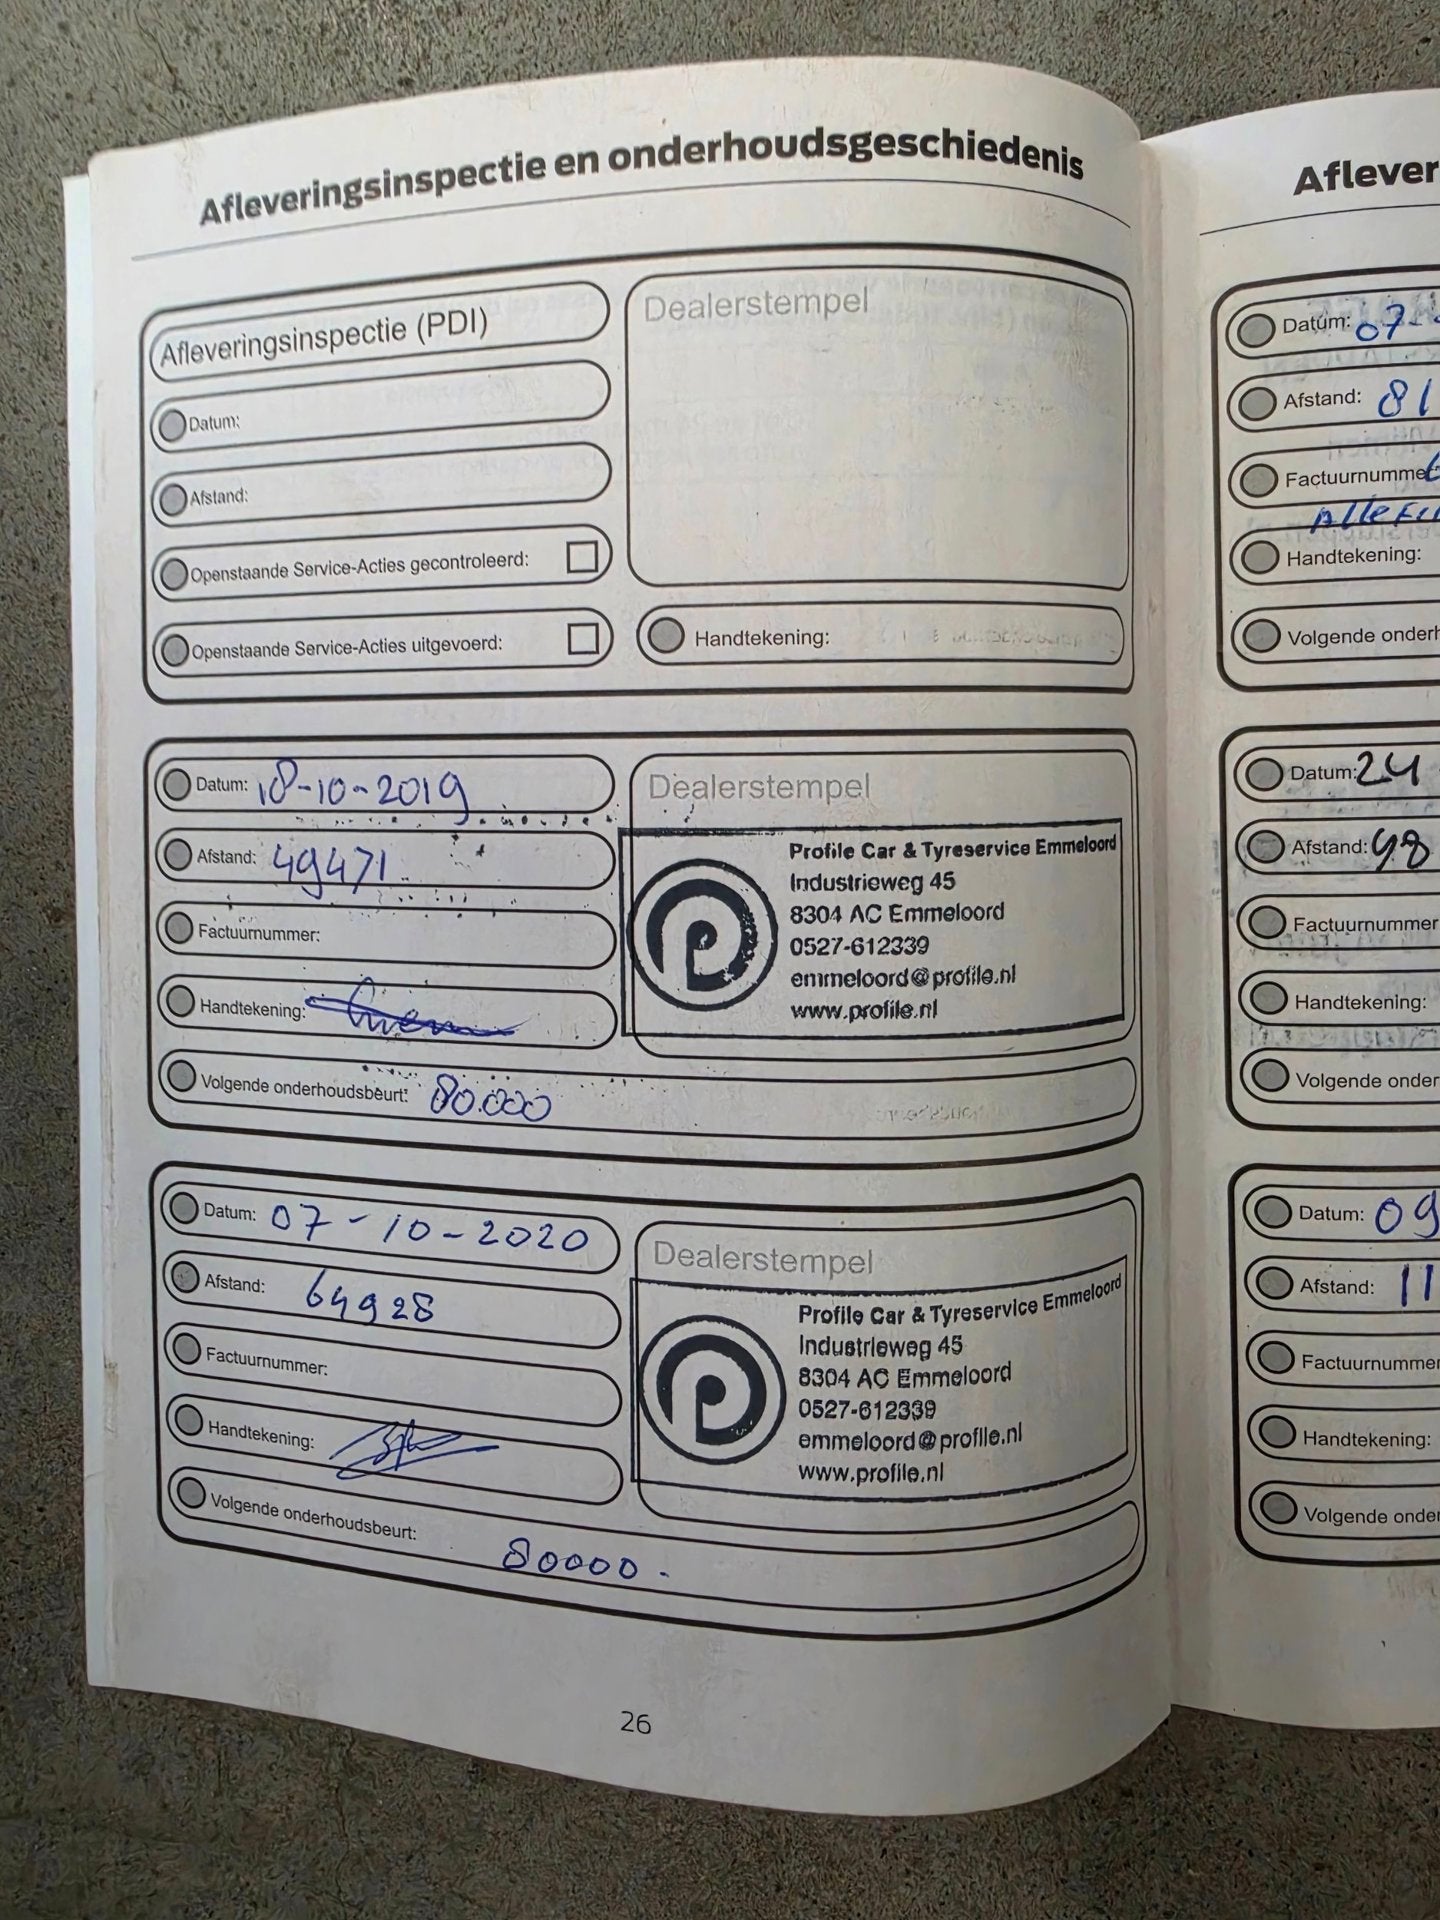 Afleveringsinspectie en onderhoudsgeschiedenis
Afleveringsinspectie (PDI)
Datum:
Afstand:
Openstaande Service-Acties gecontroleerd:
Openstaande Service-Acties uitgevoerd:
Dealerstempel
Handtekening:
Datum: 18-10-2019
Afstand: 49471
Factuurnummer:
Handtekening:
Volgende onderhoudsbeurt: 80.000
Dealerstempel
Profile Car & Tyreservice Emmeloord
Industrieweg 45
8304 AC Emmeloord
0527-612339
emmeloord@profile.nl
www.profile.nl
Datum: 07-10-2020
Afstand: 64928
Factuurnummer:
Handtekening:
Volgende onderhoudsbeurt: 80000.
Dealerstempel
Profile Car & Tyreservice Emmeloord
Industrieweg 45
8304 AC Emmeloord
0527-612339
emmeloord@profile.nl
www.profile.nl
26
Aflever
Datum: 07-
Afstand: 81
Factuurnummer
Handtekening:
Volgende onderh
Datum: 24
Afstand: 98
Factuurnummer
Handtekening:
Volgende onder
Datum: 09
Afstand: 11
Factuurnummer
Handtekening:
Volgende onder